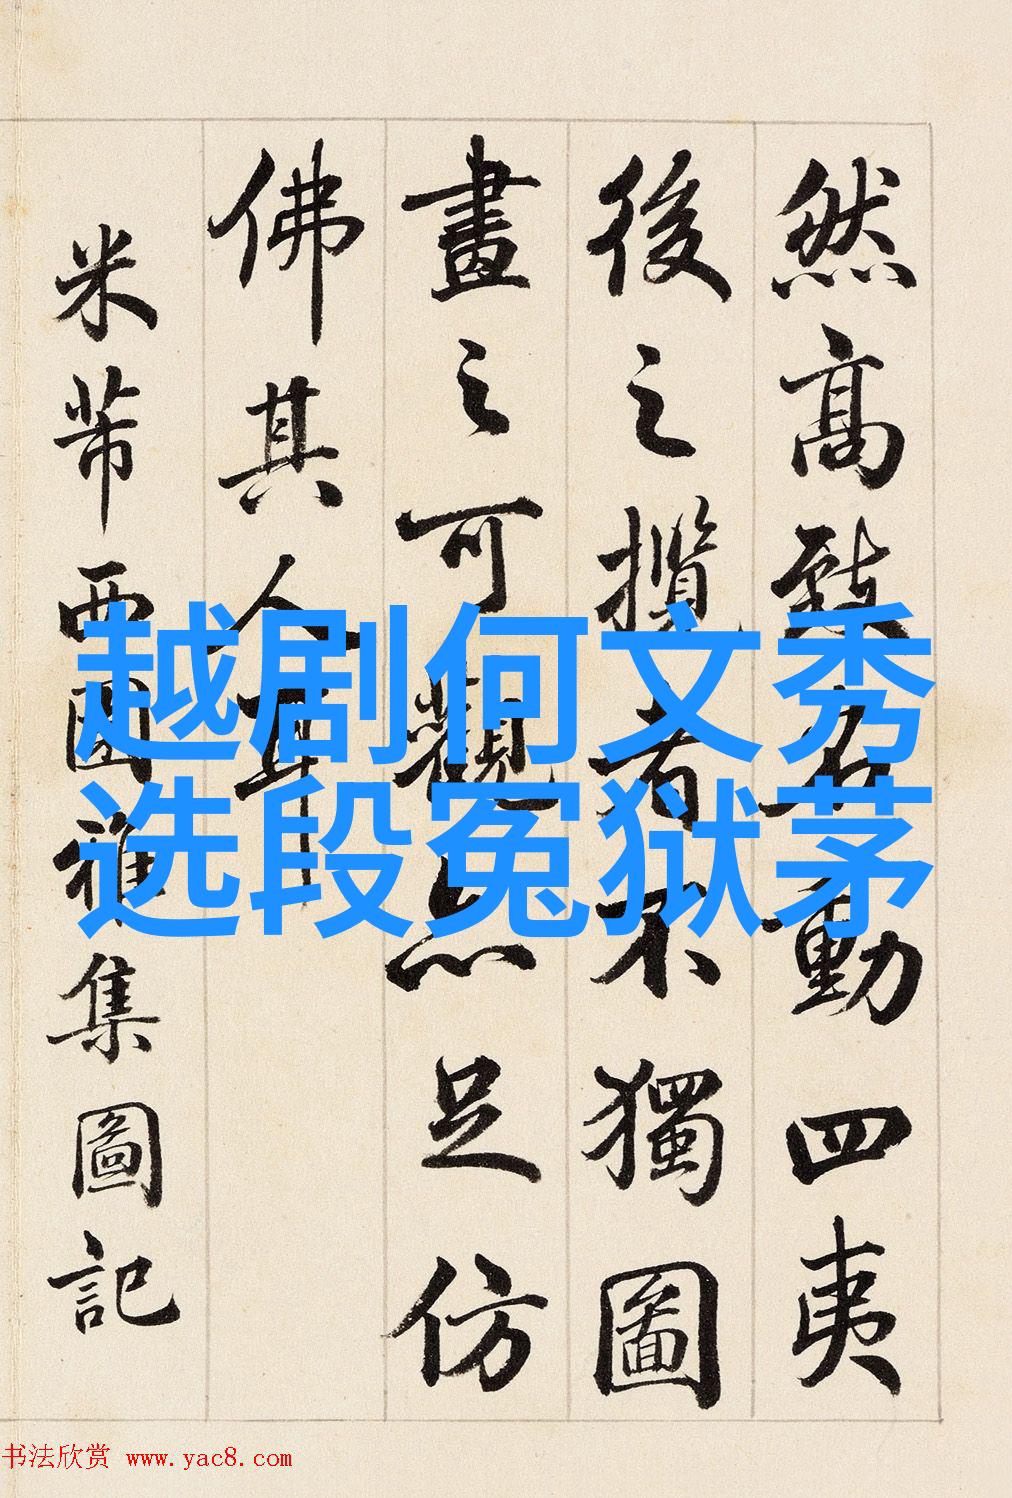 然高致名動四夷
後之攬者不獨圖
畫之可觀亦足仿
佛其人耳
米芾西園雅集圖記
越剧何文秀
选段冤狱茅
书法欣赏 www.yac8.com